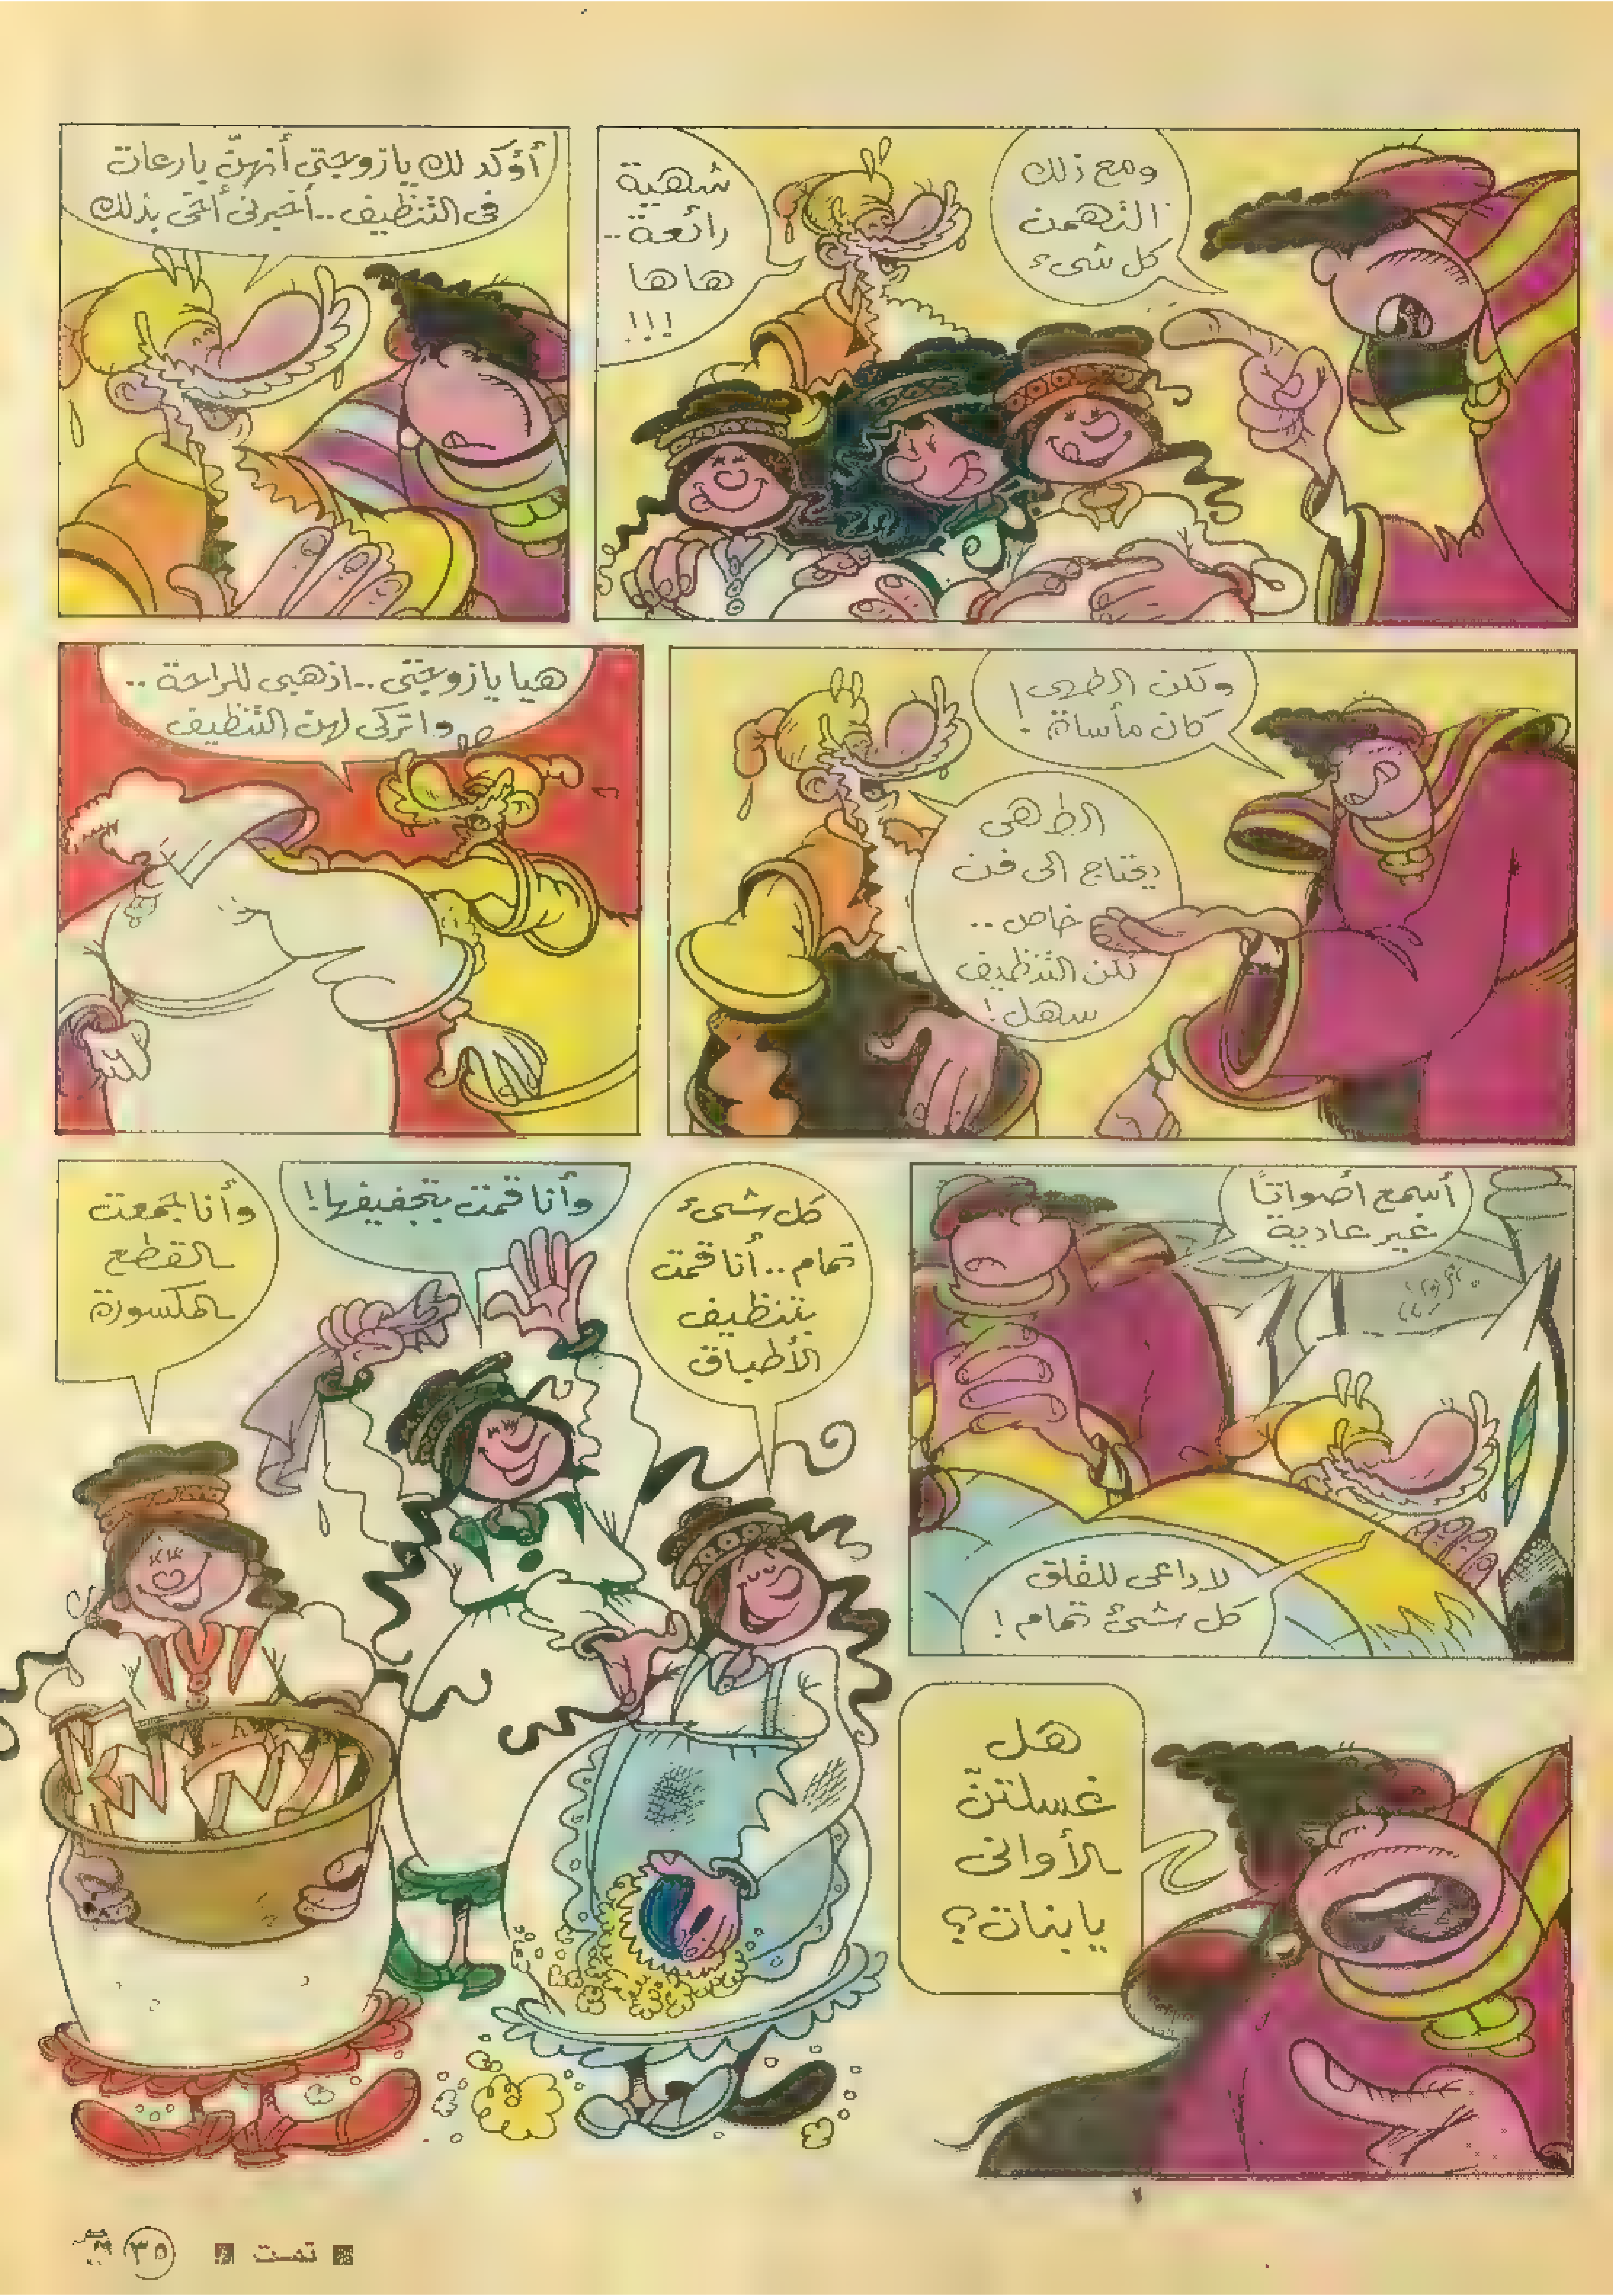 ومع ذلك
التهمن
كل شىء
شهية
رائعة..
هاها
!!!
أؤكد لك يا زوجتى أنهنّ بارعات
فى التنظيف.. أخبرنى أخى بذلك
ولكن الطهى
كان مأساة!
الطهى
يحتاج الى فن
خاص..
لكن التنظيف
سهل!
هيا يا زوجتى.. اذهبى للراحة..
واتركى لهن التنظيف
أسمع أصواتًا
غير عادية
لا داعى للقلق
كل شىء تمام!
هل
غسلتنّ
الأوانى
يا بنات؟
كل شىء
تمام.. أنا قمت
بتنظيف
الأطباق
وأنا قمت بتجفيفها!
وأنا جمعت
القطع
المكسورة
تمت
٣٥